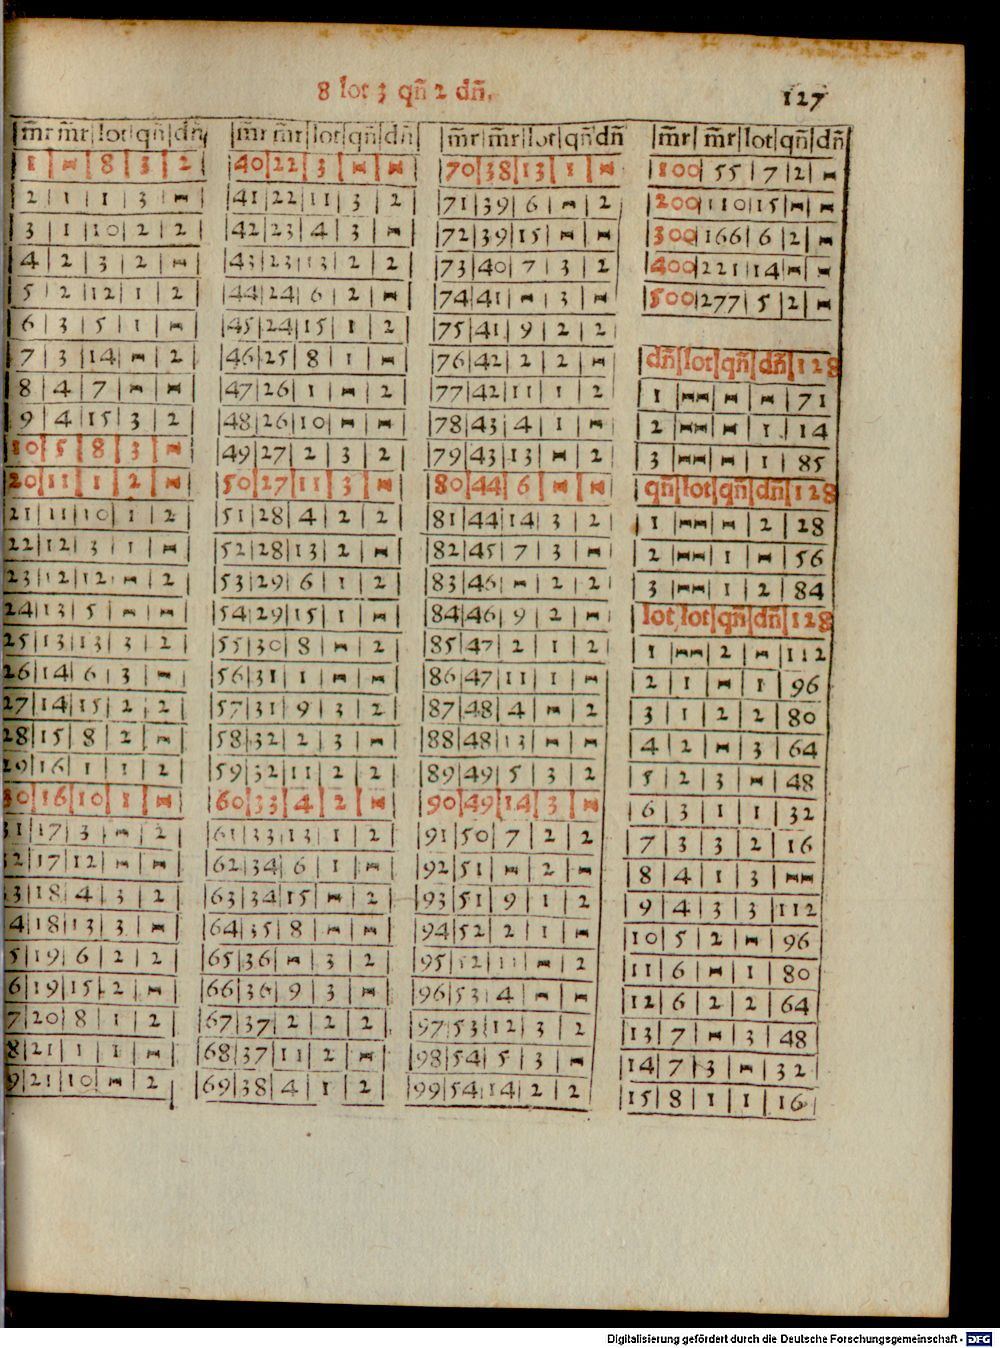 8 lot 3 qñ 2 dñ.
127
m̃r|m̃r|lot|qñ|dñ
1|-|8|3|2
2|1|1|3|-
3|1|10|2|2
4|2|3|2|-
5|2|12|1|2
6|3|5|1|-
7|3|14|-|2
8|4|7|-|-
9|4|15|3|2
10|5|8|3|-
20|11|1|2|-
21|11|10|1|2
22|12|3|1|-
23|12|12|-|2
24|13|5|-|-
25|13|13|3|2
26|14|6|3|-
27|14|15|2|2
28|15|8|2|-
29|16|1|1|2
30|16|10|1|-
31|17|3|-|2
2|17|12|-|-
3|18|4|3|2
4|18|13|3|-
5|19|6|2|2
6|19|15|2|-
7|20|8|1|2
8|21|1|1|-
9|21|10|-|2
m̃r|m̃r|lot|qñ|dñ
40|22|3|-|-
41|22|11|3|2
42|23|4|3|-
43|23|13|2|2
44|24|6|2|-
45|24|15|1|2
46|25|8|1|-
47|26|1|-|2
48|26|10|-|-
49|27|2|3|2
50|27|11|3|-
51|28|4|2|2
52|28|13|2|-
53|29|6|1|2
54|29|15|1|-
55|30|8|-|2
56|31|1|-|-
57|31|9|3|2
58|32|2|3|-
59|32|11|2|2
60|33|4|2|-
61|33|13|1|2
62|34|6|1|-
63|34|15|-|2
64|35|8|-|-
65|36|-|3|2
66|36|9|3|-
67|37|2|2|2
68|37|11|2|-
69|38|4|1|2
m̃r|m̃r|lot|qñ|dñ
70|38|13|1|-
71|39|6|-|2
72|39|15|-|-
73|40|7|3|2
74|41|-|3|-
75|41|9|2|2
76|42|2|2|-
77|42|11|1|2
78|43|4|1|-
79|43|13|-|2
80|44|6|-|-
81|44|14|3|2
82|45|7|3|-
83|46|-|2|2
84|46|9|2|-
85|47|2|1|2
86|47|11|1|-
87|48|4|-|2
88|48|13|-|-
89|49|5|3|2
90|49|14|3|-
91|50|7|2|2
92|51|-|2|-
93|51|9|1|2
94|52|2|1|-
95|52|11|-|2
96|53|4|-|-
97|53|12|3|2
98|54|5|3|-
99|54|14|2|2
m̃r|m̃r|lot|qñ|dñ
100|55|7|2|-
200|110|15|-|-
300|166|6|2|-
400|221|14|-|-
500|277|5|2|-
dñ|lot|qñ|dñ|128
1|-|-|-|71
2|-|-|1|14
3|-|-|1|85
qñ|lot|qñ|dñ|128
1|-|-|2|28
2|-|1|-|56
3|-|1|2|84
lot|lot|qñ|dñ|128
1|-|2|-|112
2|1|-|1|96
3|1|2|2|80
4|2|-|3|64
5|2|3|-|48
6|3|1|1|32
7|3|3|2|16
8|4|1|3|-
9|4|3|3|112
10|5|2|-|96
11|6|-|1|80
12|6|2|2|64
13|7|-|3|48
14|7|3|-|32
15|8|1|1|16
Digitalisierung gefördert durch die Deutsche Forschungsgemeinschaft - DFG